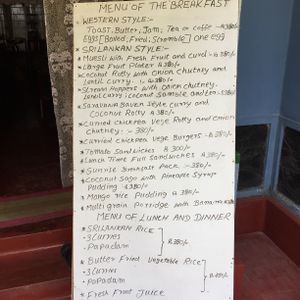 MENU OF THE BREAKFAST
WESTERN STYLE:-
Toast, Butter, Jam, Tea or Coffe
Eggs [Boiled, Fried, Scramble] one egg
SRILANKAN STYLE:-
* Muesli with Fresh Fruit and Curd - 380/-
* Large Fruit Plater A 380/-
* Coconut Rotty with onion Chutney and
Lentil Curry. 380/-
* Stream Hoppers with onion chutney,
Lentil curry, Coconut Sambole, and Egg - 380/-
* Saravanam Baven Style curry and
Coconut Rotty A 380/-
* Curried chickpea Vege Rotty and onion
Chutney :- 380/-
* Curried chickpea Vege Burgers - 380/-
* Tomato Sandwiches A 300/-
* Lunch Time Full Sandwiches A 380/-
* Sunrise Breakfast Pack :- 380/-
* Coconut Sago with Pineapple Syrup
Pudding 380/-
* Mango rice Pudding a 380/-
* Multi grain Porridge with Banana
MENU OF LUNCH AND DINNER
* SRILANKAN RICE
- 3 Curries
- Papadam
380/-
* Butter Fried Vegetable Rice
- 3 Curries
- Papadam
* Fresh Fruit Juice